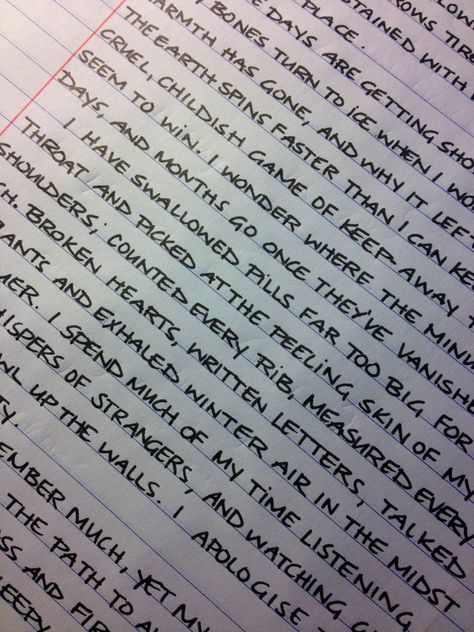 STAINED WITH
PLACE.
DAYS ARE GETTING SHO
BONES TURN TO ICE WHEN I WO
ARMTH HAS GONE, AND WHY IT LEF
THE EARTH SPINS FASTER THAN I CAN KE
CRUEL, CHILDISH GAME OF KEEP AWAY
SEEM TO WIN. I WONDER WHERE THE MIN
DAYS, AND MONTHS GO ONCE THEY'VE VANISHE
I HAVE SWALLOWED PILLS FAR TOO BIG FOR
THROAT AND PICKED AT THE PEELING SKIN OF MY
SHOULDERS; COUNTED EVERY RIB, MEASURED EVERY
CH. BROKEN HEARTS, WRITTEN LETTERS, TALKED
RANTS AND EXHALED WINTER AIR IN THE MIDST
MER. I SPEND MUCH OF MY TIME LISTENING
HISPERS OF STRANGERS, AND WATCHING
WL UP THE WALLS. I APOLOGISE
TY.
EMBER MUCH, YET MY
THE PATH TO A
SS AND FIR
LEEPY